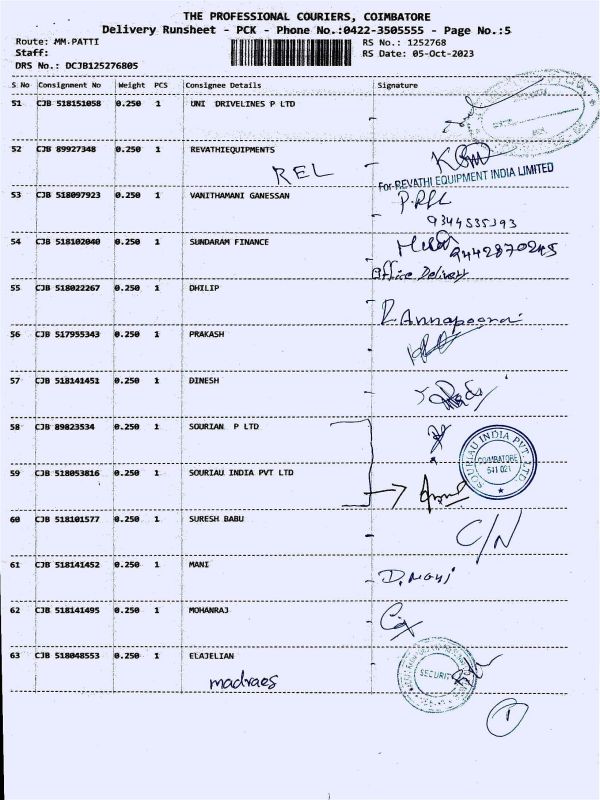 THE PROFESSIONAL COURIERS, COIMBATORE
Delivery Runsheet - PCK - Phone No.:0422-3505555 - Page No.:5
Route: MM.PATTI RS No.: 1252768
Staff: RS Date: 05-Oct-2023
DRS No.: DCJB125276805
S No Consignment No Weight PCS Consignee Details Signature
51 CJB 518151058 0.250 1 UNI DRIVELINES P LTD
52 CJB 89927348 0.250 1 REVATHIEQUIPMENTS
REL
For REVATHI EQUIPMENT INDIA LIMITED
53 CJB 518097923 0.250 1 VANITHAMANI GANESSAN
9344535393
54 CJB 518102040 0.250 1 SUNDARAM FINANCE
9442870245
Office Delivery
55 CJB 518022267 0.250 1 DHILIP
R. Annapoorani
56 CJB 517955343 0.250 1 PRAKASH
57 CJB 518141451 0.250 1 DINESH
58 CJB 89823534 0.250 1 SOURIAN P LTD
SOURIAU INDIA PVT. LTD.
COIMBATORE
641 021
59 CJB 518053816 0.250 1 SOURIAU INDIA PVT LTD
60 CJB 518101577 0.250 1 SURESH BABU
C/N
61 CJB 518141452 0.250 1 MANI
D. Mani
62 CJB 518141495 0.250 1 MOHANRAJ
63 CJB 518048553 0.250 1 ELAJELIAN
SECURITY
madraes
1